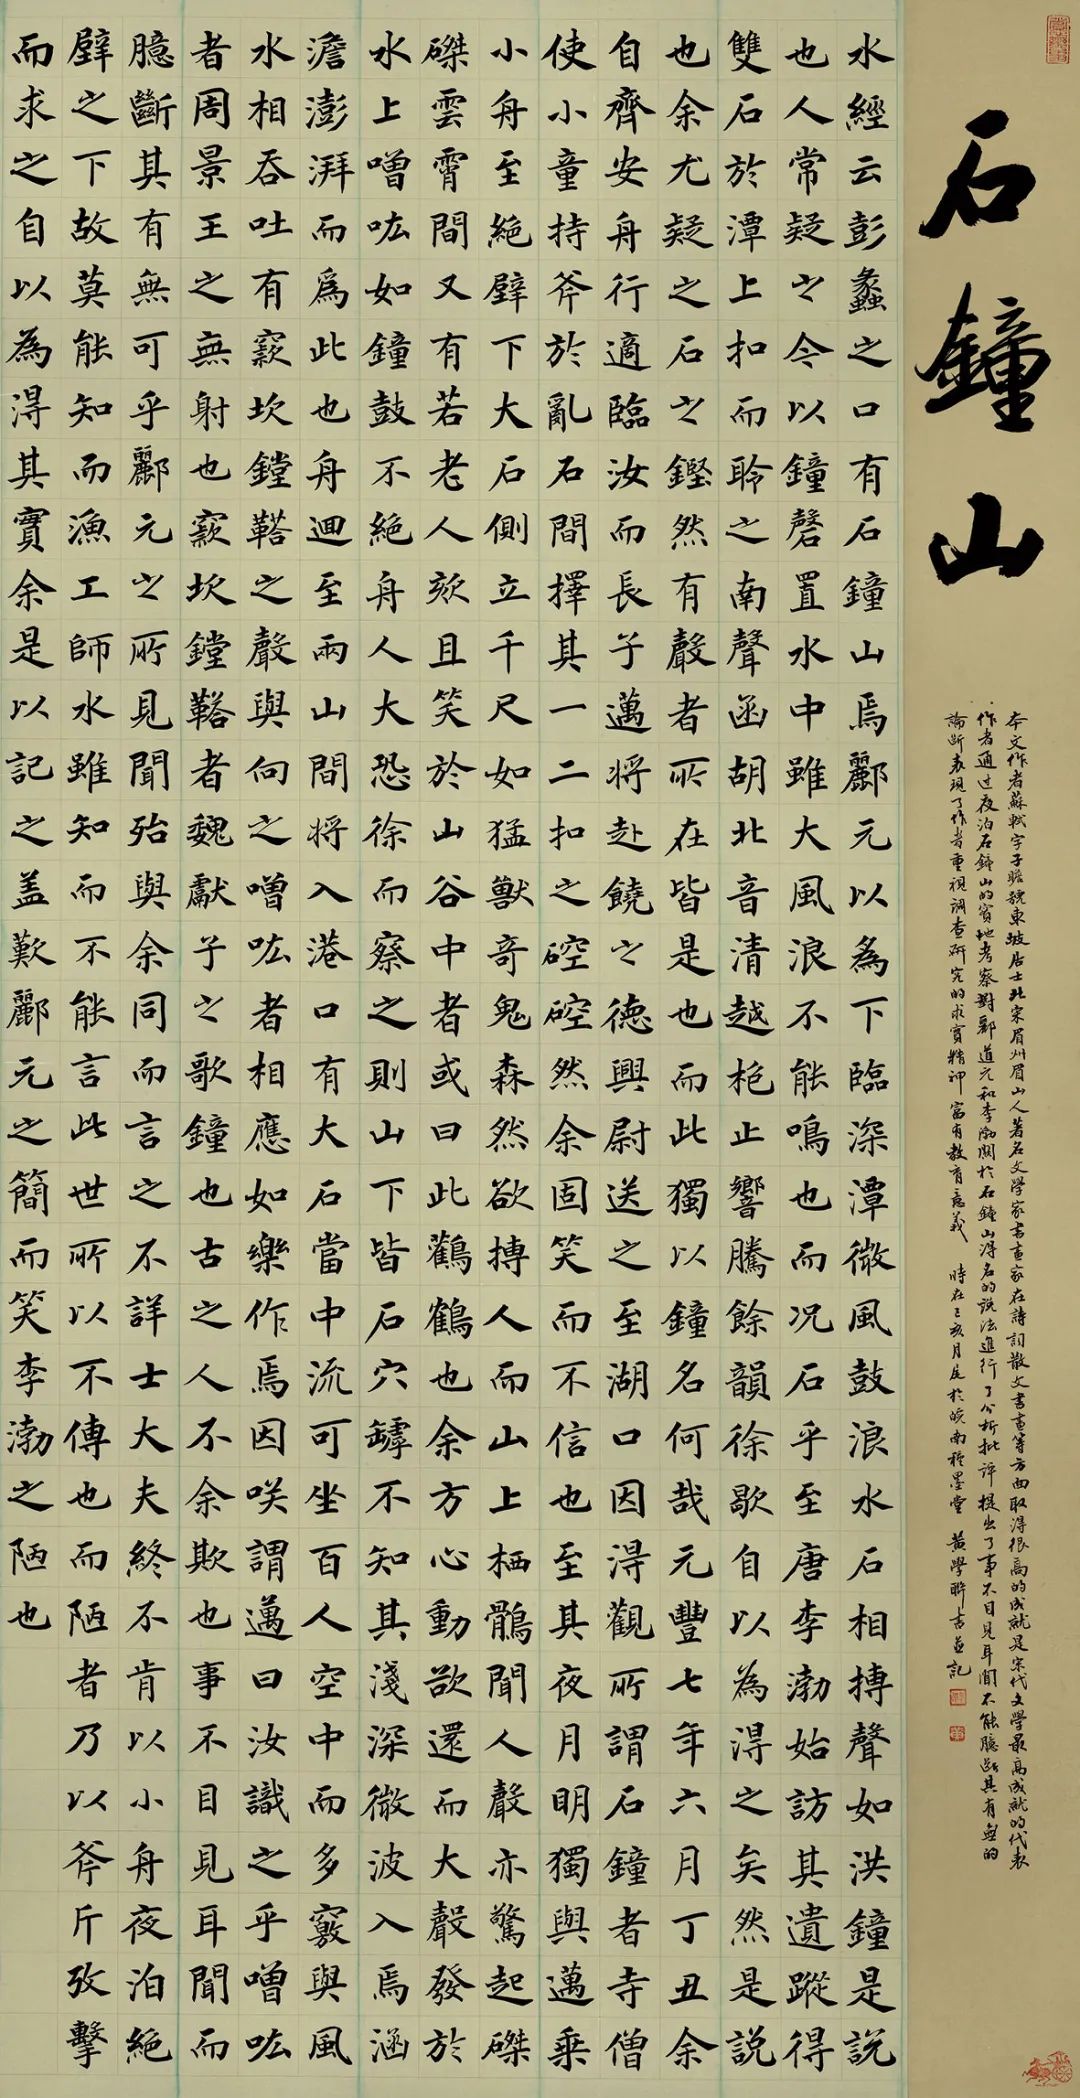 石鐘山
本文作者蘇軾字子瞻號東坡居士北宋眉州眉山人著名文學家書畫家在詩詞散文書畫等方面取得很高的成就是宋代文學最高成就的代表
作者通过夜泊石鐘山的實地考察對酈道元和李渤關於石鐘山得名的說法進行了分析批評提出了事不目見耳聞不能臆斷其有無的
論斷表現了作者重視調查研究的求實精神富有教育意義 時在己亥月於皖南 墨堂 黃學聯書並記
水經云彭蠡之口有石鐘山焉酈元以為下臨深潭微風鼓浪水石相搏聲如洪鐘是說
也人常疑之今以鐘磬置水中雖大風浪不能鳴也而況石乎至唐李渤始訪其遺蹤得
雙石於潭上扣而聆之南聲函胡北音清越枹止響騰餘韻徐歇自以為得之矣然是說
也余尤疑之石之鏗然有聲者所在皆是也而此獨以鐘名何哉元豐七年六月丁丑余
自齊安舟行適臨汝而長子邁將赴饒之德興尉送之至湖口因得觀所謂石鐘者寺僧
使小童持斧於亂石間擇其一二扣之硿硿然余固笑而不信也至其夜月明獨與邁乘
小舟至絕壁下大石側立千尺如猛獸奇鬼森然欲搏人而山上栖鶻聞人聲亦驚起磔
磔雲霄間又有若老人欬且笑於山谷中者或曰此鸛鶴也余方心動欲還而大聲發於
水上噌吰如鐘鼓不絕舟人大恐徐而察之則山下皆石穴罅不知其淺深微波入焉涵
澹澎湃而為此也舟迴至兩山間將入港口有大石當中流可坐百人空中而多竅與風
水相吞吐有窾坎鏜鞳之聲與向之噌吰者相應如樂作焉因笑謂邁曰汝識之乎噌吰
者周景王之無射也窾坎鏜鞳者魏獻子之歌鐘也古之人不余欺也事不目見耳聞而
臆斷其有無可乎酈元之所見聞殆與余同而言之不詳士大夫終不肯以小舟夜泊絕
壁之下故莫能知而漁工師水雖知而不能言此世所以不傳也而陋者乃以斧斤攷擊
而求之自以為得其實余是以記之蓋歎酈元之簡而笑李渤之陋也